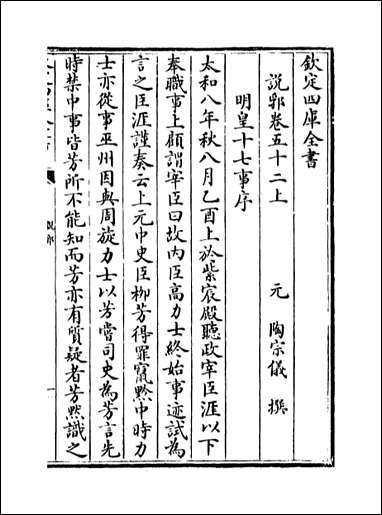 欽定四庫全書
說郛卷五十二上
元 陶宗儀 撰
明皇十七事序
太和八年秋八月乙酉上於紫宸殿聽政宰臣涯以下
奉職事上顧謂宰臣曰故内臣高力士終始事迹試為
言之臣涯謹奏云上元中史臣柳芳得罪竄黔中時力
士亦從事巫州因與周旋力士以芳嘗司史為芳言先
時禁中事皆芳所不能知而芳亦有質疑者芳黙識之
說郛
一